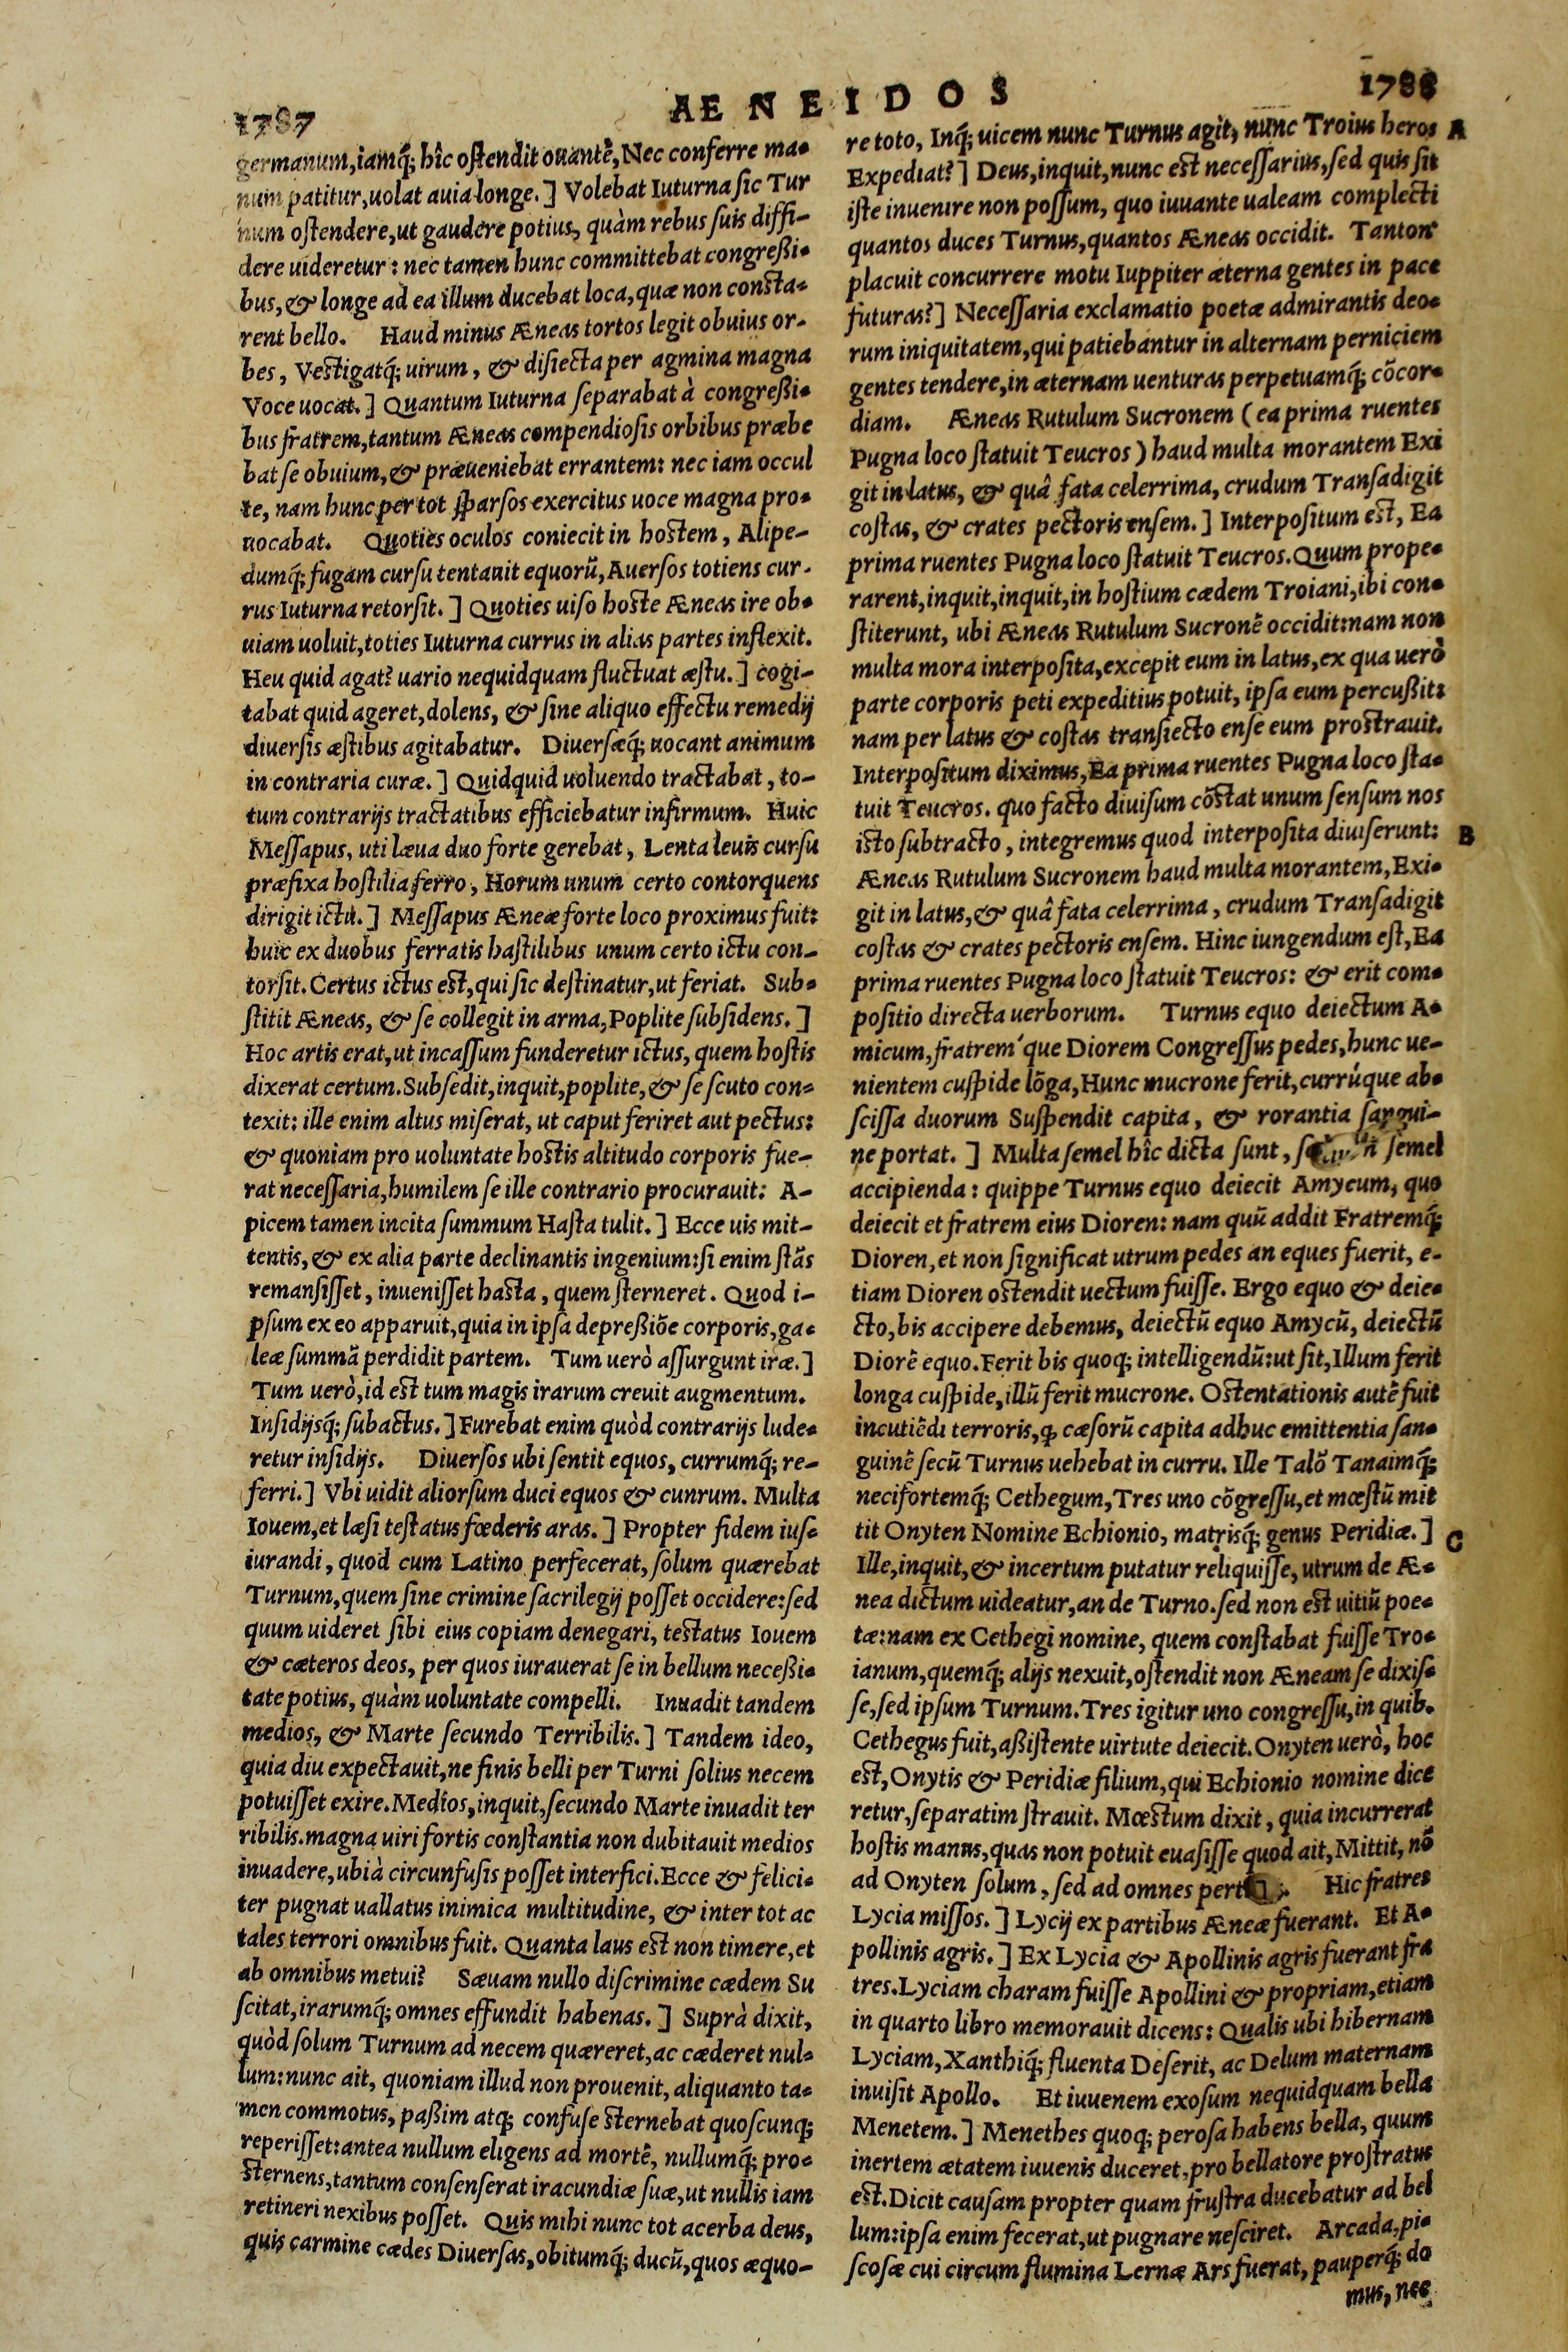 AENEIDOS
1787
germanum, iamq́; hîc ostendit ouantē, Nec conferre ma-
num patitur, uolat auia longe.] Volebat Iuturna sic Tur
num ostendere, ut gaudere potius, quàm rebus suis diffi-
dere uideretur: nec tamen hunc committebat congreßi-
bus, & longe ad ea illum ducebat loca, quæ non consta-
rent bello. Haud minus Æneas tortos legit obuius or-
bes, Vestigatq́; uirum, & disiecta per agmina magna
Voce uocat.] Quantum Iuturna separabat à congreßi-
bus fratrem, tantum Æneas compendiosis orbibus præbe
bat se obuium, & præueniebat errantem: nec iam occul
te, nam hunc per tot sparsos exercitus uoce magna pro-
uocabat. Quoties oculos coniecit in hostem, Alipe-
dumq́; fugam cursu tentauit equorū, Auersos totiens cur-
rus Iuturna retorsit.] Quoties uiso hoste Æneas ire ob-
uiam uoluit, toties Iuturna currus in alias partes inflexit.
Heu quid agat? uario nequidquam fluctuat æstu.] cogi-
tabat quid ageret, dolens, & sine aliquo effectu remedij
diuersis æstibus agitabatur. Diuersæq́; uocant animum
in contraria curæ.] Quidquid uoluendo tractabat, to-
tum contrarijs tractatibus efficiebatur infirmum. Huic
Messapus, uti læua duo forte gerebat, Lenta leuis cursu
præfixa hostilia ferro, Horum unum certo contorquens
dirigit ictū.] Messapus Æneæ forte loco proximus fuit:
huic ex duobus ferratis hastilibus unum certo ictu con-
torsit. Certus ictus est, qui sic destinatur, ut feriat. Sub-
stitit Æneas, & se collegit in arma, Poplite subsidens.]
Hoc artis erat, ut incassum funderetur ictus, quem hostis
dixerat certum. Subsedit, inquit, poplite, & se scuto con-
texit: ille enim altus miserat, ut caput feriret aut pectus:
& quoniam pro uoluntate hostis altitudo corporis fue-
rat necessaria, humilem se ille contrario procurauit: A-
picem tamen incita summum Hasta tulit.] Ecce uis mit-
tentis, & ex alia parte declinantis ingenium: si enim stās
remansisset, inuenisset hasta, quem sterneret. Quod i-
psum ex eo apparuit, quia in ipsa depreßiōe corporis, ga-
leæ summā perdidit partem. Tum uerò assurgunt iræ.]
Tum uerò, id est tum magis irarum creuit augmentum.
Insidijsq́; subactus.] Furebat enim quòd contrarijs lude-
retur insidijs. Diuersos ubi sentit equos, currumq́; re-
ferri.] Vbi uidit aliorsum duci equos & cunrum. Multa
Iouem, et læsi testatus fœderis aras.] Propter fidem ius-
iurandi, quod cum Latino perfecerat, solum quærebat
Turnum, quem sine crimine sacrilegij posset occidere: sed
quum uideret sibi eius copiam denegari, testatus Iouem
& cæteros deos, per quos iurauerat se in bellum neceßi-
tate potius, quàm uoluntate compelli. Inuadit tandem
medios, & Marte secundo Terribilis.] Tandem ideo,
quia diu expectauit, ne finis belli per Turni solius necem
potuisset exire. Medios, inquit, secundo Marte inuadit ter
ribilis. magna uiri fortis constantia non dubitauit medios
inuadere, ubi à circunfusis posset interfici. Ecce & felici-
ter pugnat uallatus inimica multitudine, & inter tot ac
tales terrori omnibus fuit. Quanta laus est non timere, et
ab omnibus metui? Sæuam nullo discrimine cædem Su
scitat, irarumq́; omnes effundit habenas.] Suprà dixit,
quòd solum Turnum ad necem quæreret, ac cæderet nul-
lum: nunc ait, quoniam illud non prouenit, aliquanto ta-
men commotus, paßim atq; confuse sternebat quoscunq;
reperisset: antea nullum eligens ad mortē, nullumq́; pro-
sternens, tantum consenserat iracundiæ suæ, ut nullis iam
retineri nexibus posset. Quis mihi nunc tot acerba deus,
quis carmine cædes Diuersas, obitumq́; ducū, quos æquo-
1788
re toto, Inq́; uicem nunc Turnus agit, nunc Troius heros
A
Expediat?] Deus, inquit, nunc est necessarius, sed quis sit
iste inuenire non possum, quo iuuante ualeam complecti
quantos duces Turnus, quantos Æneas occidit. Tanton'
placuit concurrere motu Iuppiter æterna gentes in pace
futuras?] Necessaria exclamatio poetæ admirantis deo-
rum iniquitatem, qui patiebantur in alternam perniciem
gentes tendere, in æternam uenturas perpetuamq́; cōcor-
diam. Æneas Rutulum Sucronem (ea prima ruentes
Pugna loco statuit Teucros) haud multa morantem Exi
git in latus, & quâ fata celerrima, crudum Transadigit
costas, & crates pectoris ensem.] Interpositum est, Ea
prima ruentes Pugna loco statuit Teucros. Quum prope-
rarent, inquit, inquit, in hostium cædem Troiani, ibi con-
stiterunt, ubi Æneas Rutulum Sucronē occidit: nam non
multa mora interposita, excepit eum in latus, ex qua uerò
parte corporis peti expeditius potuit, ipsa eum percußit:
nam per latus & costas transiecto ense eum prostrauit.
Interpositum diximus, Ea prima ruentes Pugna loco sta-
tuit Teucros. quo facto diuisum cōstat unum sensum nos
isto subtracto, integremus quod interposita diuiserunt:
B
Æneas Rutulum Sucronem haud multa morantem, Exi-
git in latus, & quâ fata celerrima, crudum Transadigit
costas & crates pectoris ensem. Hinc iungendum est, Ea
prima ruentes Pugna loco statuit Teucros: & erit com-
positio directa uerborum. Turnus equo deiectum A-
micum, fratrem'que Diorem Congressus pedes, hunc ue-
nientem cuspide lōga, Hunc mucrone ferit, currúque ab-
scissa duorum Suspendit capita, & rorantia sangui-
ne portat.] Multa semel hîc dicta sunt, semel
accipienda: quippe Turnus equo deiecit Amycum, quo
deiecit et fratrem eius Dioren: nam quū addit Fratremq́;
Dioren, et non significat utrum pedes an eques fuerit, e-
tiam Dioren ostendit uectum fuisse. Ergo equo & deie-
cto, bis accipere debemus, deiectū equo Amycū, deiectū
Diorē equo. Ferit bis quoq; intelligendū: ut sit, Illum ferit
longa cuspide, illū ferit mucrone. Ostentationis autē fuit
incutiēdi terroris, ꝙ cæsorū capita adhuc emittentia san-
guinē secū Turnus uehebat in curru. Ille Talō Tanaimq́;
neci fortemq́; Cethegum, Tres uno cōgressu, et mœstū mit
tit Onyten Nomine Echionio, matrisq́; genus Peridiæ.]
C
Ille, inquit, & incertum putatur reliquisse, utrum de Æ-
nea dictum uideatur, an de Turno. sed non est uitiū poe-
tæ: nam ex Cethegi nomine, quem constabat fuisse Tro-
ianum, quemq́; alijs nexuit, ostendit non Æneam se dixis-
se, sed ipsum Turnum. Tres igitur uno congressu, in quib.
Cethegus fuit, aßistente uirtute deiecit. Onyten uerò, hoc
est, Onytis & Peridiæ filium, qui Echionio nomine dice
retur, separatim strauit. Mœstum dixit, quia incurrerat
hostis manus, quas non potuit euasisse quod ait, Mittit, nō
ad Onyten solum, sed ad omnes Hic fratres
Lycia missos.] Lycij ex partibus Æneæ fuerant. Et A-
pollinis agris.] Ex Lycia & Apollinis agris fuerant fra
tres. Lyciam charam fuisse Apollini & propriam, etiam
in quarto libro memorauit dicens: Qualis ubi hibernam
Lyciam, Xanthiq́; fluenta Deserit, ac Delum maternam
inuisit Apollo. Et iuuenem exosum nequidquam bella
Menetem.] Menethes quoq; perosa habens bella, quum
inertem ætatem iuuenis duceret, pro bellatore prostratus
est. Dicit causam propter quam frustra ducebatur ad bel
lum: ipsa enim fecerat, ut pugnare nesciret. Arcada, pi-
scosæ cui circum flumina Lernæ Ars fuerat, pauperq́; do
mus, nec